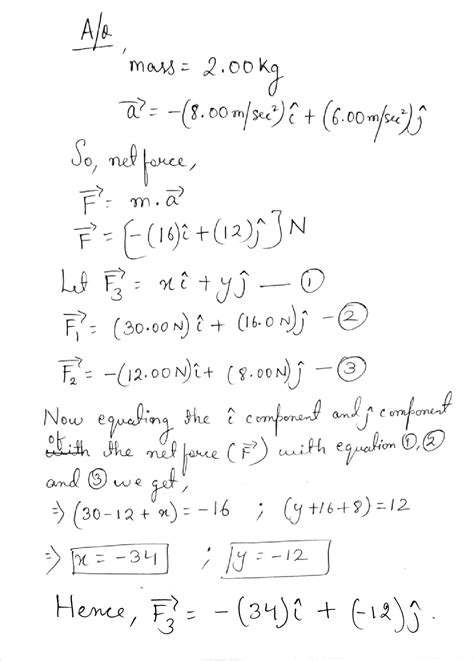 A/Q,
mass = 2.00 kg
a⃗ = -(8.00 m/sec²) î + (6.00 m/sec²) ĵ
So, net force,
F⃗ = m.a⃗
F⃗ = [-(16)î + (12)ĵ] N
Let F⃗₃ = xî + yĵ — ①
F⃗₁ = (30.00 N) î + (16.0 N) ĵ — ②
F⃗₂ = -(12.00 N) î + (8.00 N) ĵ — ③
Now equating the î component and ĵ component
of the net force (F⃗) with equation ①, ②
and ③ we get,
⇒ (30-12+x) = -16 ; (y+16+8) = 12
⇒ x = -34 ; y = -12
Hence, F⃗₃ = -(34)î + (-12)ĵ.